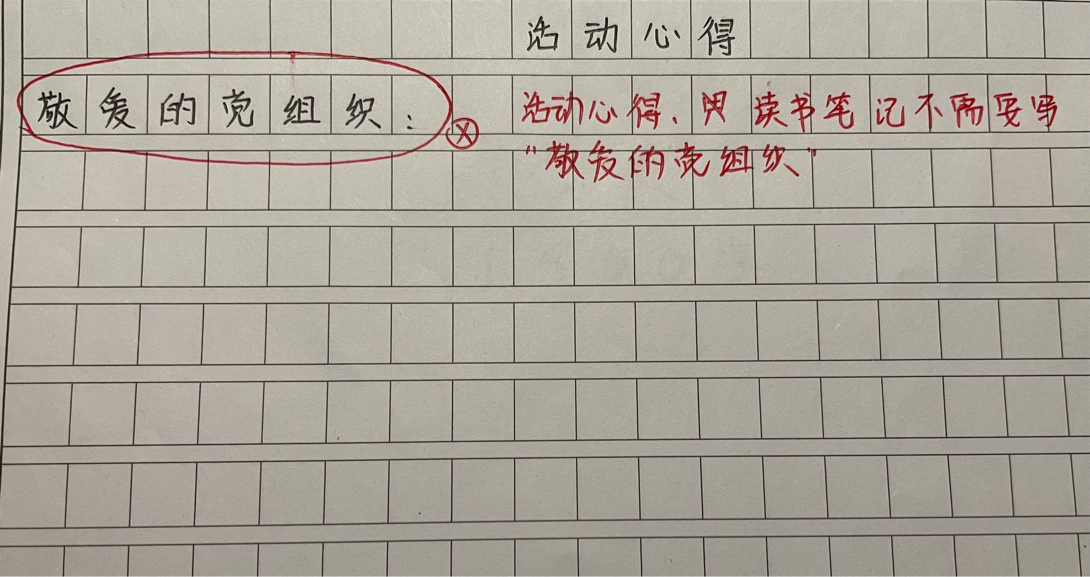 活动心得
敬爱的党组织：
活动心得、读书笔记不需要写
"敬爱的党组织"